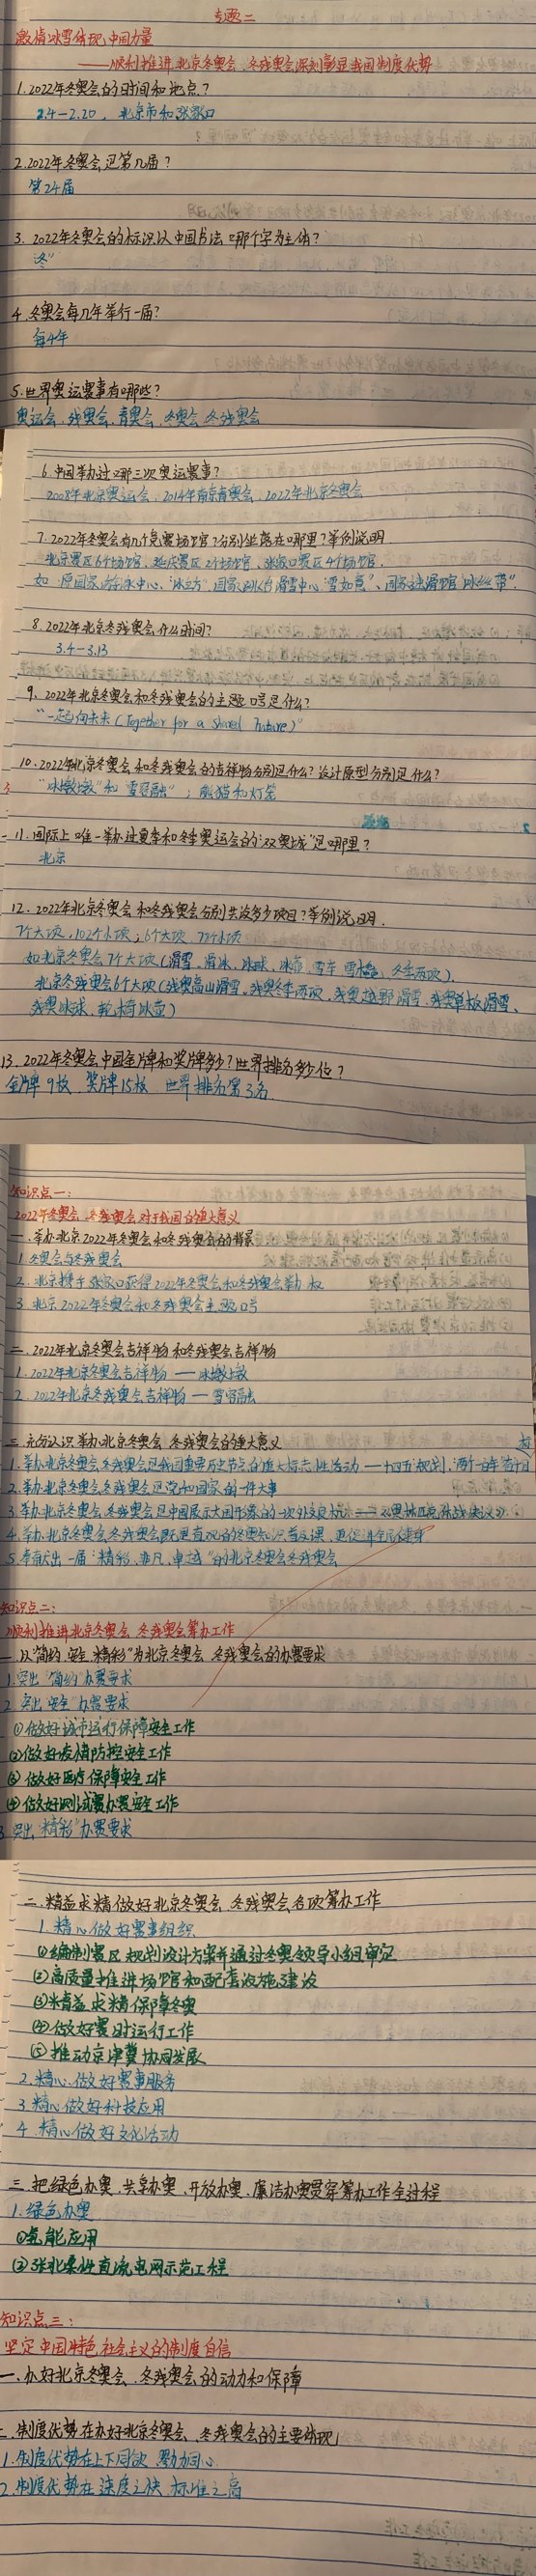 专题二
激情冰雪体现中国力量
——顺利推进北京冬奥会、冬残奥会深刻彰显我国制度优势
1.2022年冬奥会的时间和地点?
2.4—2.20, 北京市和张家口
2.2022年冬奥会是第几届?
第24届
3. 2022年冬奥会的标识以中国书法哪个字为主体?
"冬"
4.冬奥会每几年举行一届?
每4年
5.世界奥运赛事有哪些?
奥运会、残奥会、青奥会、冬奥会、冬残奥会
6.中国举办过哪三次奥运赛事?
2008年北京奥运会、2014年南京青奥会、2022年北京冬奥会
7.2022年冬奥会有几个竞赛场馆?分别坐落在哪里?举例说明
北京赛区6个场馆、延庆赛区2个场馆、张家口赛区4个场馆.
如:原国家游泳中心、"冰立方"、国家跳台滑雪中心"雪如意"、国家速滑馆"冰丝带".
8.2022年北京冬残奥会什么时间?
3.4—3.13
9. 2022年北京冬奥会和冬残奥会的主题口号是什么?
"一起向未来(Together for a Shared Future)"
10.2022年北京冬奥会和冬残奥会的吉祥物分别是什么?设计原型分别是什么?
"冰墩墩"和"雪容融";熊猫和灯笼
11.国际上唯一举办过夏季和冬季奥运会的"双奥城"是哪里?
北京
12.2022年北京冬奥会和冬残奥会分别共设多少项目?举例说明.
7个大项、102个小项;6个大项、78个小项
如北京冬奥会7个大项(滑雪、滑冰、冰球、冰壶、雪车、雪橇、冬季两项).
北京冬残奥会6个大项(残奥高山滑雪、残奥冬季两项、残奥越野滑雪、残奥单板滑雪、
残奥冰球、轮椅冰壶)
13.2022年冬奥会中国金牌和奖牌多少?世界排名多少位?
金牌9枚、奖牌15枚、世界排名第3名.
知识点一:
2022年冬奥会、冬残奥会对于我国的重大意义
一、举办北京2022年冬奥会和冬残奥会的背景
1.冬奥会与冬残奥会
2.北京携手张家口获得2022年冬奥会和冬残奥会举办权
3.北京2022年冬奥会和冬残奥会主题口号
二、2022年北京冬奥会吉祥物和冬残奥会吉祥物
1.2022年北京冬奥会吉祥物——冰墩墩
2.2022年北京冬残奥会吉祥物——雪容融
三、充分认识举办北京冬奥会、冬残奥会的重大意义
1.举办北京冬奥会冬残奥会是我国重要历史节点的重大标志性活动——十四五规划,"两个一百年"奋斗目
2.举办北京冬奥会冬残奥会是党和国家的一件大事
3.举办北京冬奥会冬残奥会是中国展示大国形象的一次外交良机——《奥林匹克休战决议》
4.举办北京冬奥会冬残奥会既是直观的冬奥知识普及课,更促进全民健身
5.奉献出一届"精彩、非凡、卓越"的北京冬奥会冬残奥会
知识点二:
顺利推进北京冬奥会、冬残奥会筹办工作
一、以"简约、安全、精彩"为北京冬奥会、冬残奥会的办赛要求
1.突出"简约"办赛要求
2.突出"安全"办赛要求
①做好城市运行保障安全工作
②做好疫情防控安全工作
③做好医疗保障安全工作
④做好测试赛办赛安全工作
3.突出"精彩"办赛要求
二、精益求精做好北京冬奥会、冬残奥会各项筹办工作
1.精心做好赛事组织
①编制赛区规划设计方案并通过冬奥领导小组审定
②高质量推进场馆和配套设施建设
③精益求精保障冬奥
④做好赛时运行工作
⑤推动京津冀协同发展
2.精心做好赛事服务
3.精心做好科技应用
4.精心做好文化活动
三、把绿色办奥、共享办奥、开放办奥、廉洁办奥贯穿筹办工作全过程
1.绿色办奥
①氢能应用
②张北柔性直流电网示范工程
知识点三:
坚定中国特色社会主义的制度自信
一、办好北京冬奥会、冬残奥会的动力和保障
二、制度优势在办好北京冬奥会、冬残奥会的主要体现
1.制度优势在上下同欲、勠力同心
2.制度优势在速度之快、标准之高